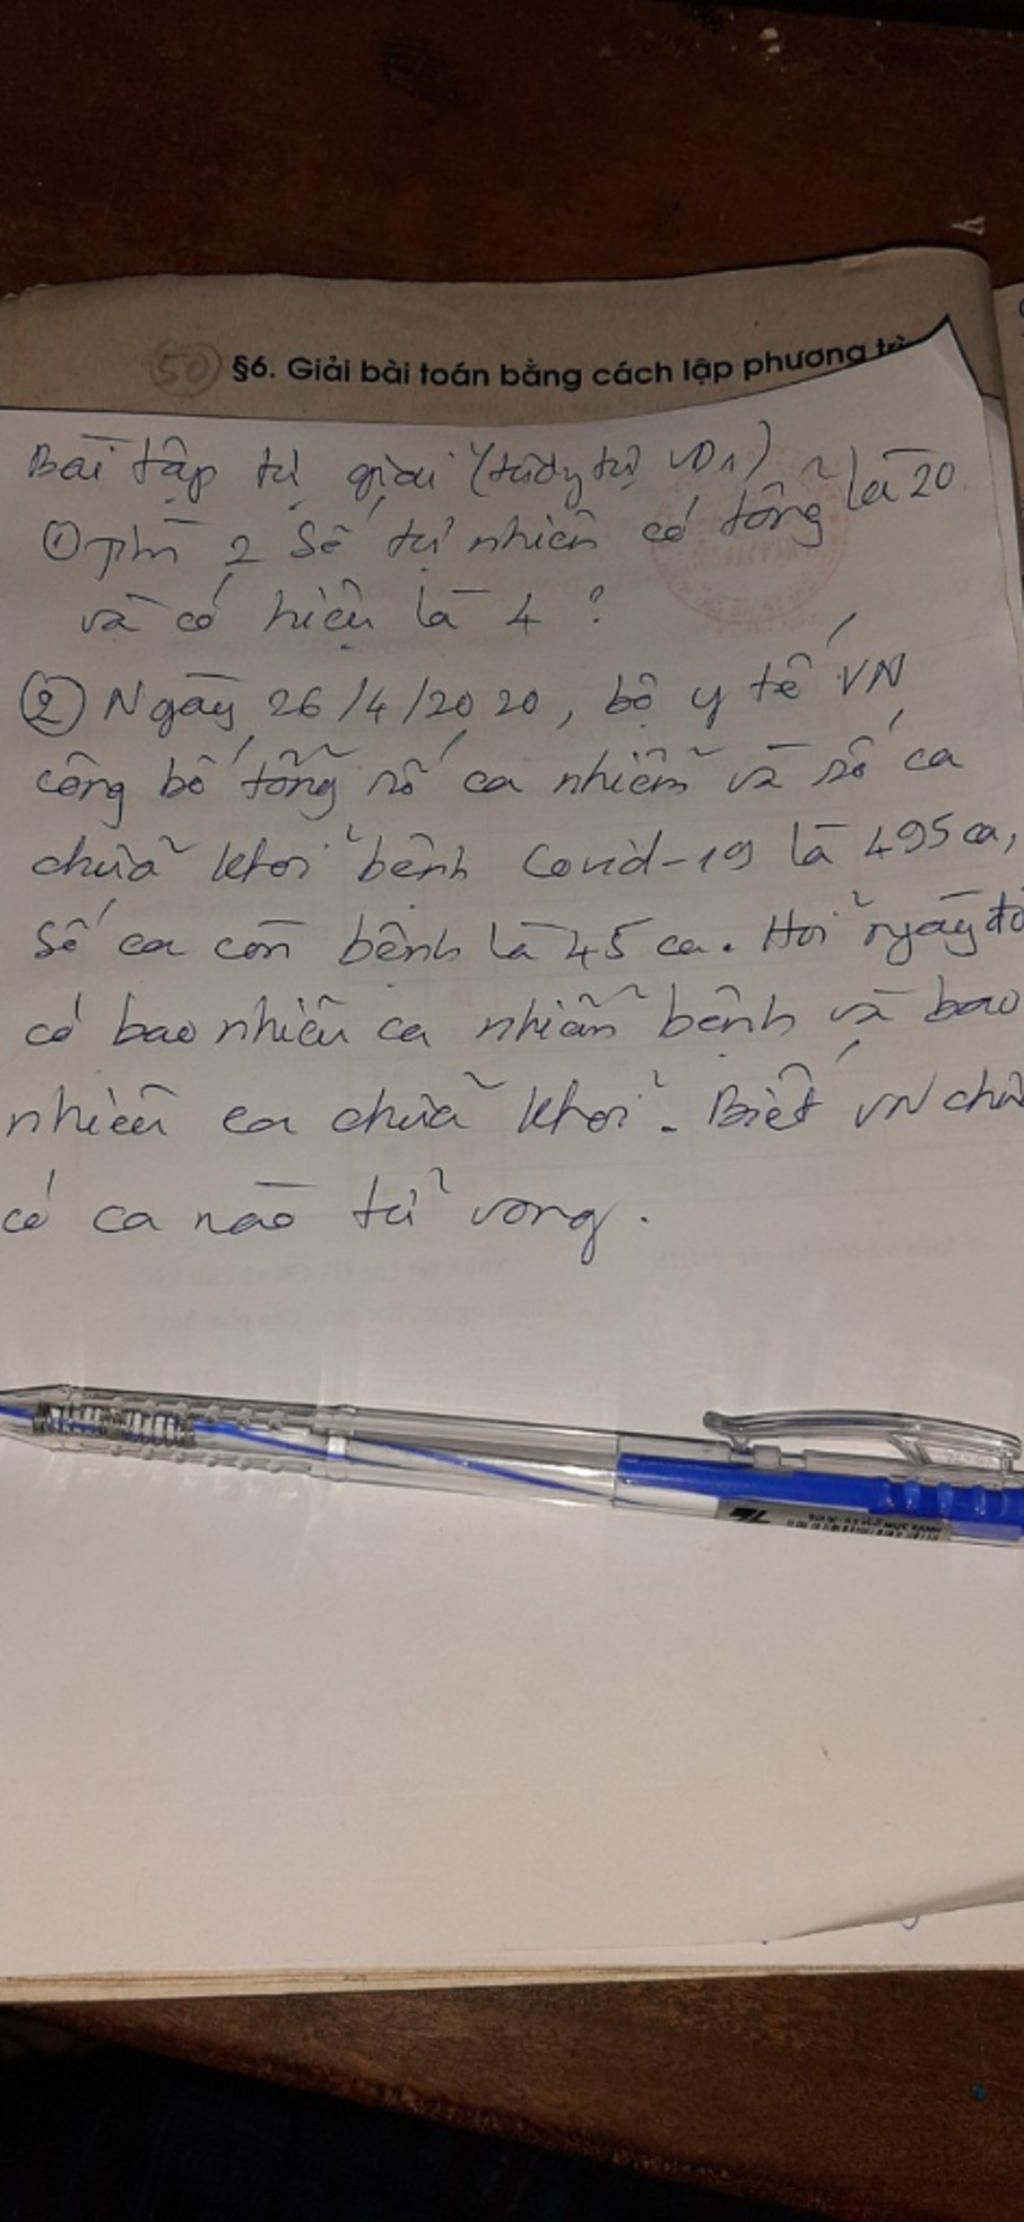 50 §6. Giải bài toán bằng cách lập phương trìn
Bài tập tự giải (tương tự VD1)
① Tìm 2 số tự nhiên có tổng là 20
và có hiệu là 4 ?
② Ngày 26/4/2020, bộ y tế VN
công bố tổng số ca nhiễm và số ca
chữa khỏi bệnh Covid-19 là 495 ca,
Số ca còn bệnh là 45 ca. Hỏi ngày đó
có bao nhiêu ca nhiễm bệnh và bao
nhiêu ca chữa khỏi. Biết VN chư
có ca nào tử vong.